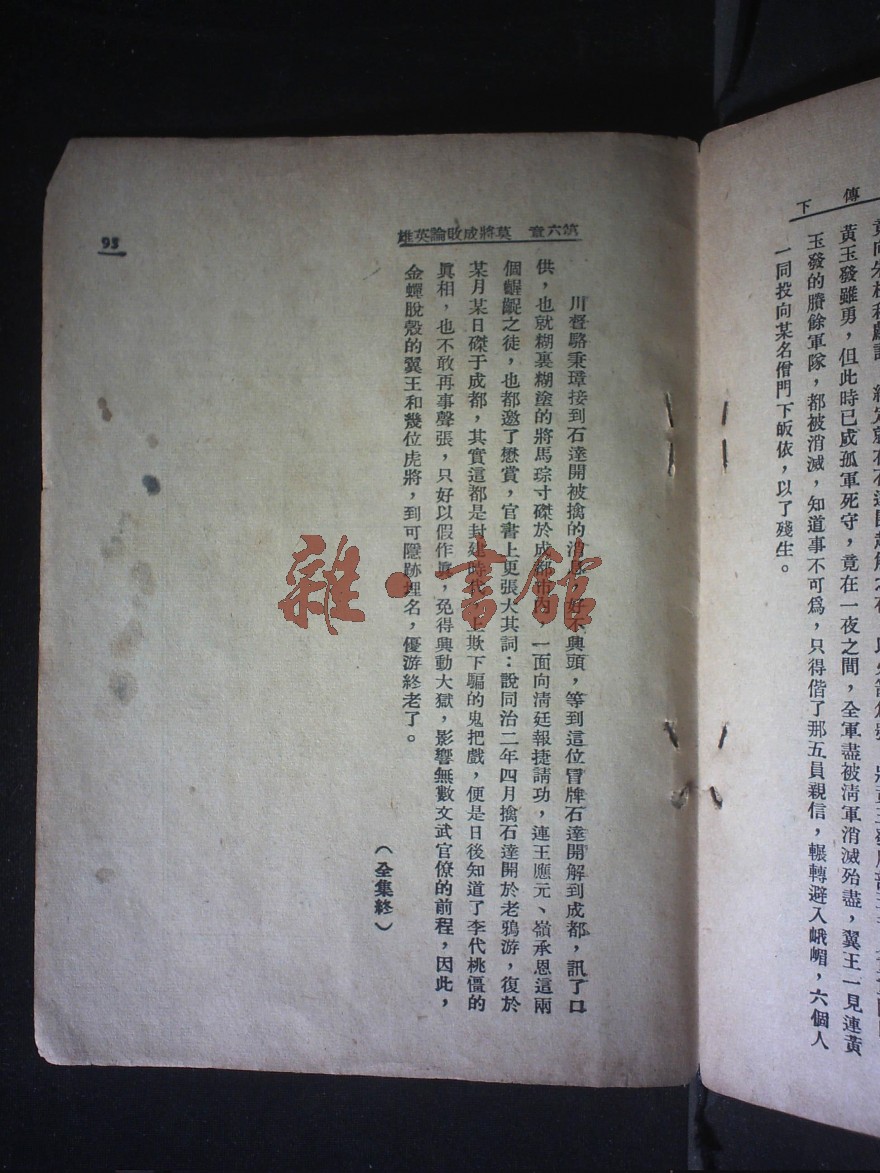 傳 下
黃玉發雖勇，但此時已成孤軍死守，竟在一夜之間，全軍盡被淸軍消滅殆盡，翼王一見連黃
玉發的賸餘軍隊，都被消滅，知道事不可爲，只得偕了那五員親信，輾轉避入峨嵋，六個人
一同投向某名僧門下皈依，以了殘生。
第六章 莫將成敗論英雄
川督駱秉璋接到石達開被擒的消息，好不興頭，等到這位冒牌石達開解到成都，訊了口
供，也就糊裏糊塗的將馬琮寸磔於成都市內，一面向淸廷報捷請功，連王應元、嶺承恩這兩
個齷齪之徒，也都邀了懋賞，官書上更張大其詞：說同治二年四月擒石達開於老鴉游，復於
某月某日磔于成都，其實這都是封建時代，上欺下騙的鬼把戲，便是日後知道了李代桃僵的
眞相，也不敢再事聲張，只好以假作眞，免得興動大獄，影響無數文武官僚的前程，因此，
金蟬脫殼的翼王和幾位虎將，到可隱跡埋名，優游終老了。
（全集終）
95
雜·書館